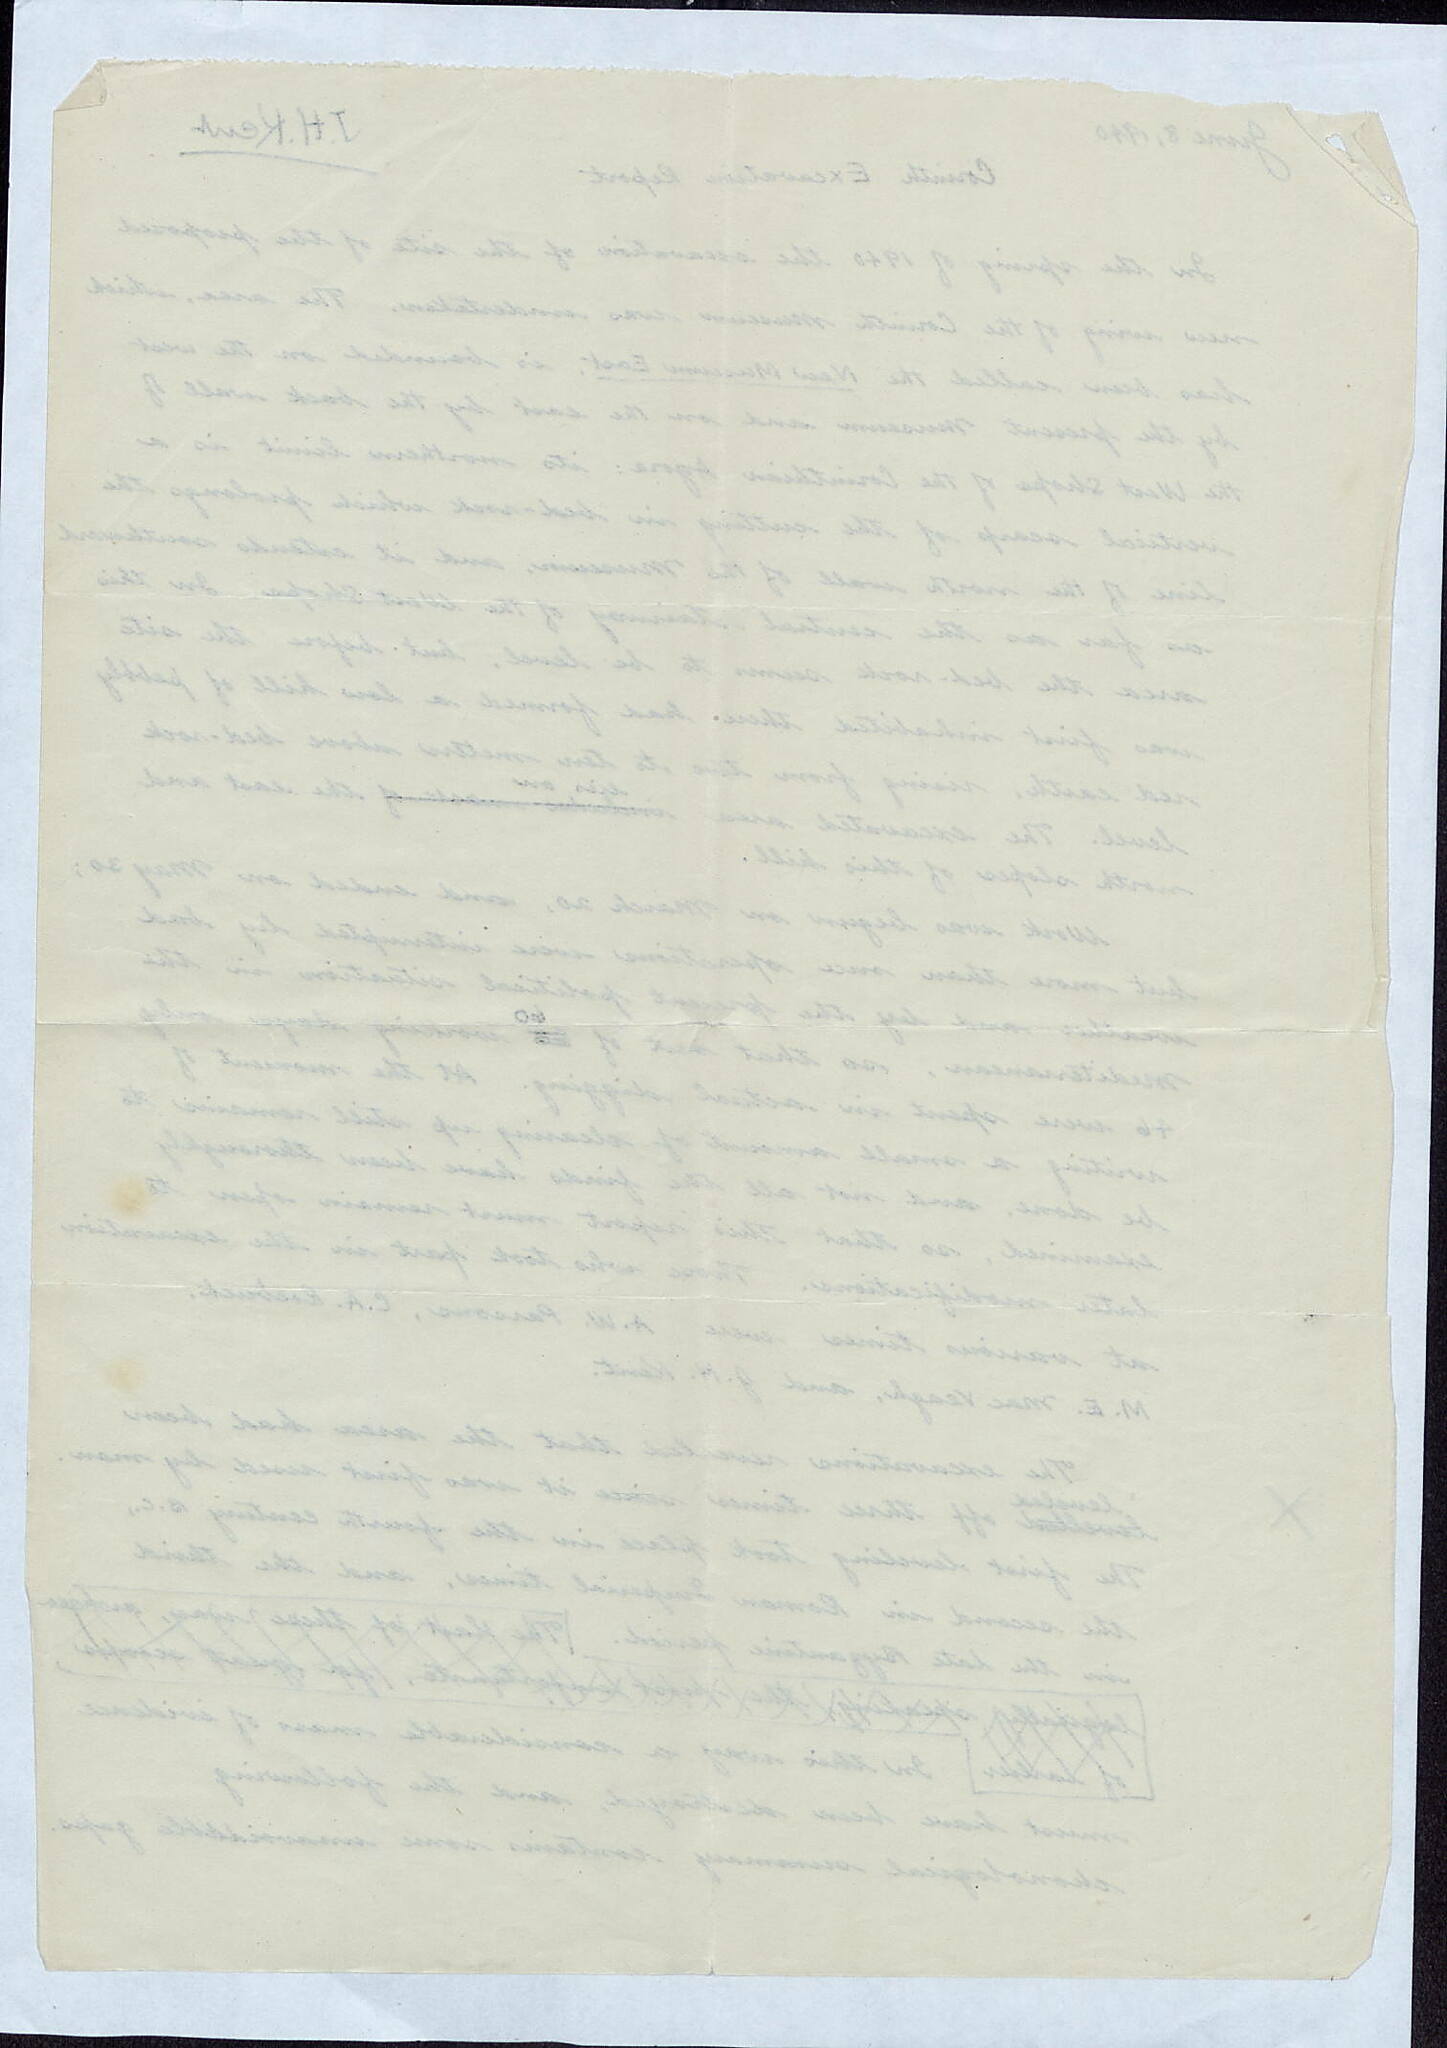 June 8, 1940
J.H. Kent
Corinth Excavation Report
In the spring of 1940 the excavation of the site of the proposed
new wing of the Corinth Museum was undertaken. The area, which
has been called the New Museum East, is bounded on the west
by the present Museum and on the east by the back wall of
the West Shops of the Corinthian Agora: its northern limit is a
vertical scarp of the cutting in bed-rock which prolongs the
line of the north wall of the Museum, and it extends southward
as far as the central stairway of the West Shops. In this
area the bed-rock seems to be level, but before the site
was first inhabited there had formed a low hill of pebbly
red earth, rising from two to ten metres above bed-rock
level. The excavated area lies on the east and
north slopes of this hill.
Work was begun on March 20, and ended on May 30;
but more than once operations were interrupted by bad
weather and by the present political situation in the
Mediterranean, so that out of 60 working days only
46 were spent in actual digging. At the moment of
writing a small amount of clearing up still remains to
be done, and not all the finds have been thoroughly
examined, so that this report must remain open to
later modifications. Those who took part in the excavation
at various times were A.W. Parsons, C.A. Roebuck,
M.E. Mac Veagh, and J.H. Kent.
The excavations revealed that the area had been
leveled
levelled off three times since it was first used by man.
The first leveling took place in the fourth century B.C.,
the second in Roman Imperial times, and the third
in the late Byzantine period. The last of these was,
speaking, the most unfortunate,
of In this way a considerable mass of evidence
must have been destroyed, and the following
chronological summary contains some unavoidable gaps.